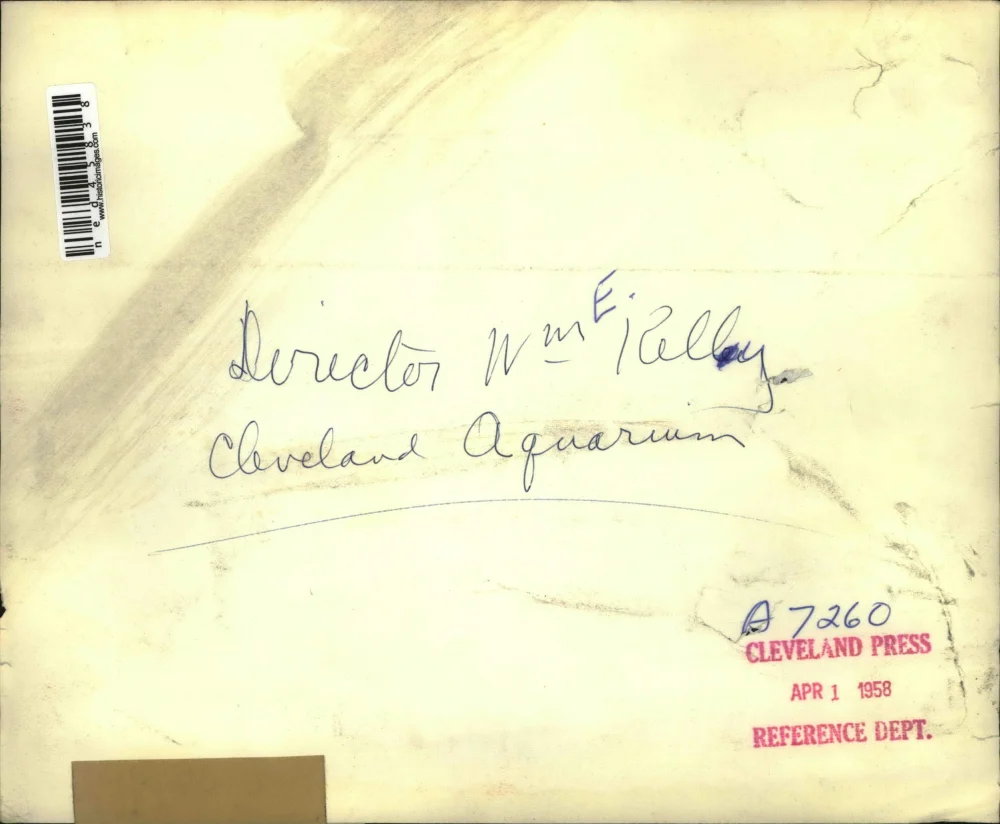 ned45838
www.historicimages.com
Director Wm E. Kelley
Cleveland Aquarium
A 7260
CLEVELAND PRESS
APR 1 1958
REFERENCE DEPT.